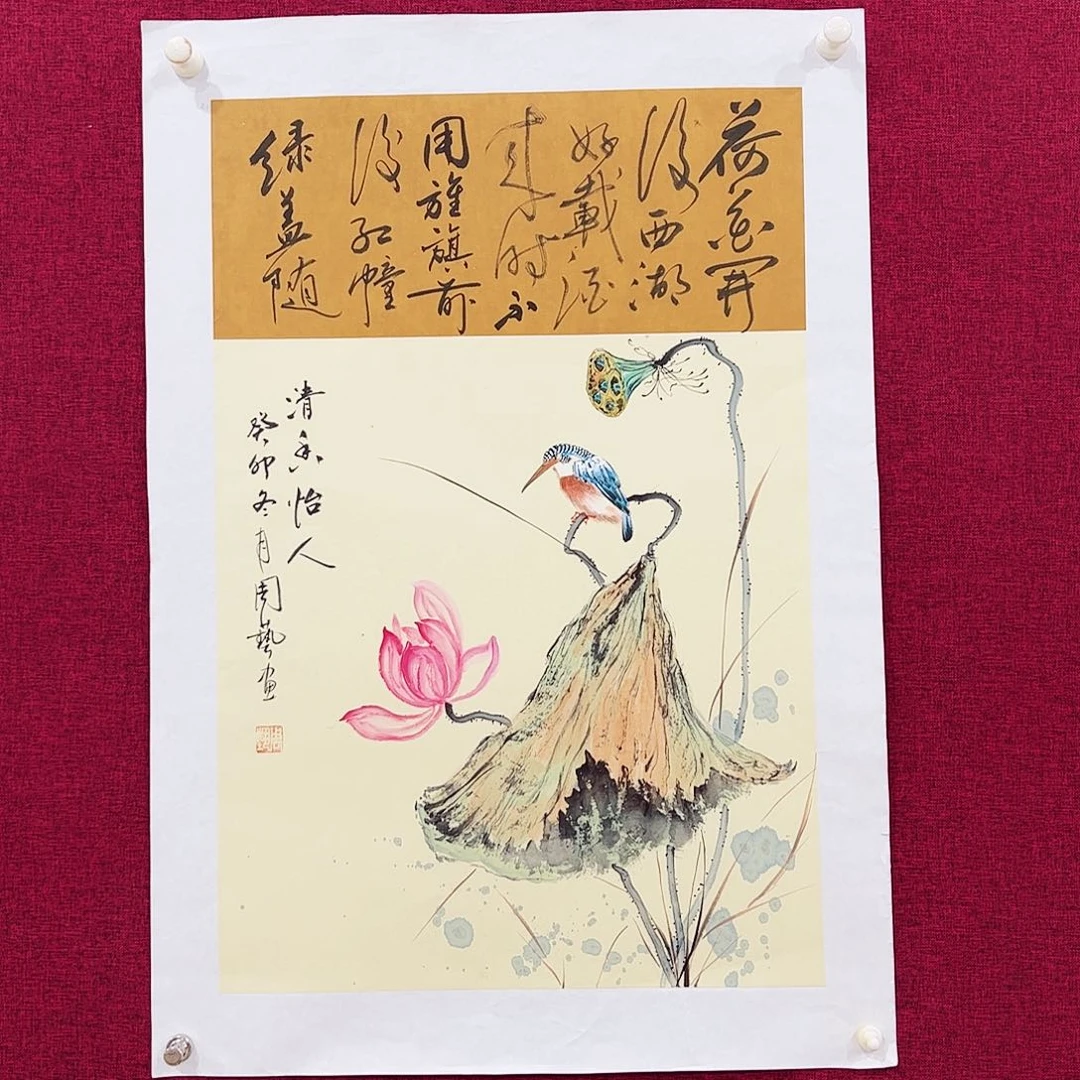 荷花開
後西湖
好載酒
来时不
用旌旗前
後红幢
绿盖随
清香怡人
癸卯冬月周藝画